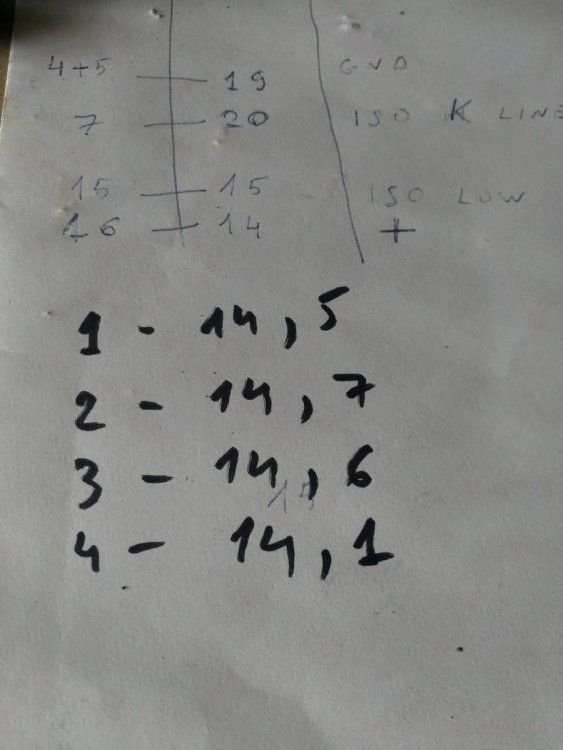 4+5 19 GND
7 20 ISO K LINE
15 15 ISO LOW
16 14 +
1 - 14,5
2 - 14,7
3 - 14,6
15
4 - 14,1